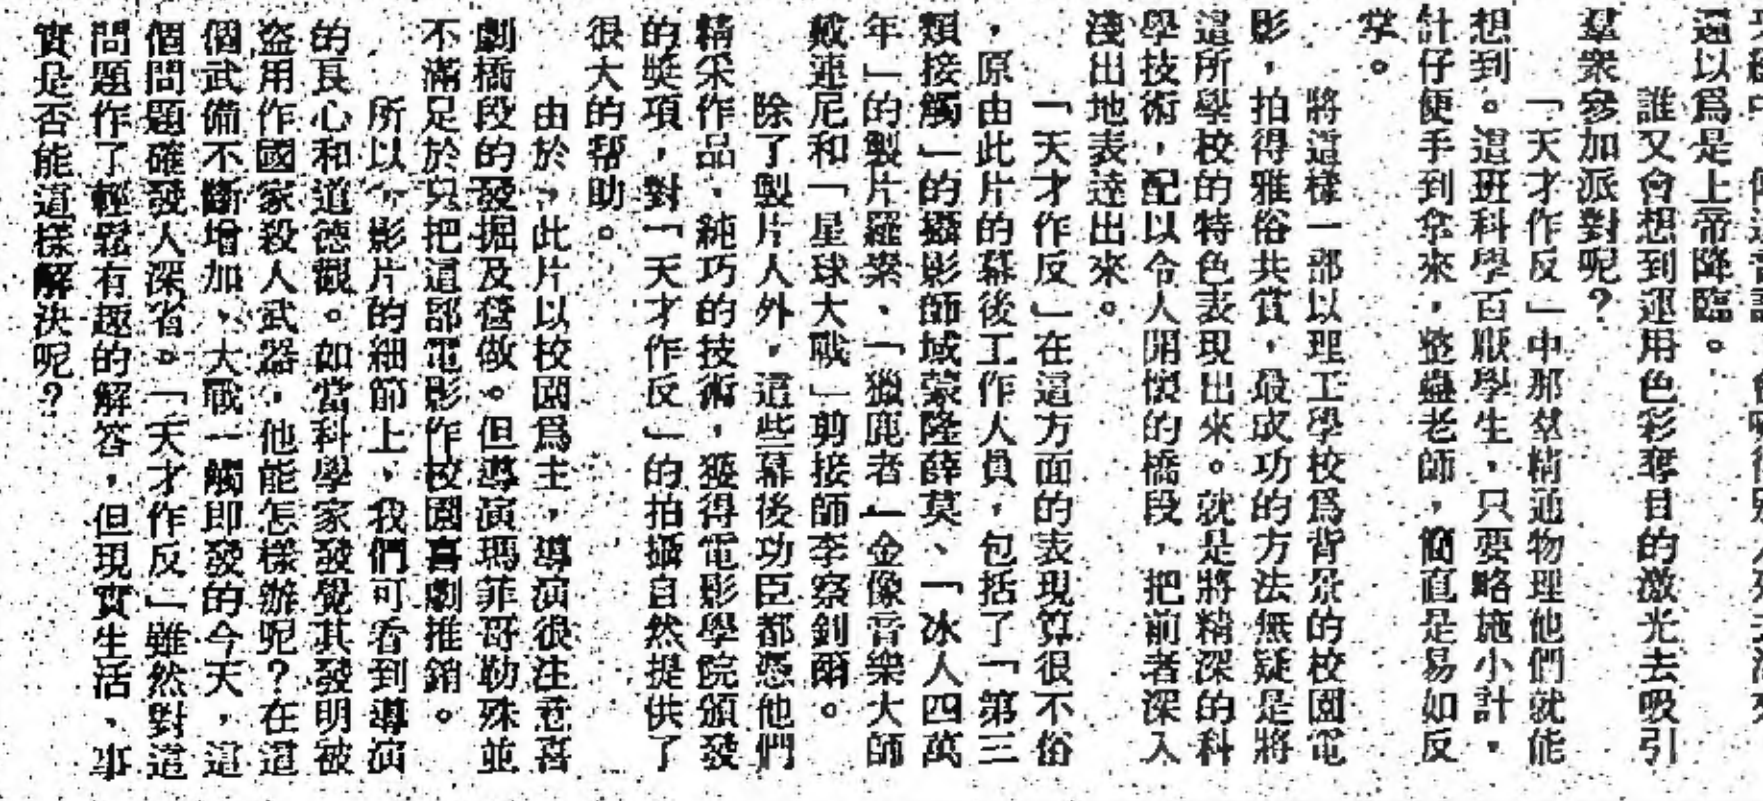 還以爲是上帝降臨。
誰又會想到運用色彩奪目的激光去吸引
羣衆參加派對呢？
「天才作反」中那羣精通物理他們就能
想到。這班科學百厭學生，只要略施小計，
計仔便手到拿來，整蠱老師，簡直是易如反
掌。
將這樣一部以理工學校爲背景的校園電
影，拍得雅俗共賞，最成功的方法無疑是將
這所學校的特色表現出來。就是將精深的科
學技術，配以令人開懷的橋段，把前者深入
淺出地表達出來。
「天才作反」在這方面的表現算很不俗
，原由此片的幕後工作人員，包括了「第三
類接觸」的攝影師域蒙隆薛莫、「冰人四萬
年」的製片羅崇、「獵鹿者」金像音樂大師
戴連尼和「星球大戰」剪接師李察釗爾。
除了製片人外，這些幕後功臣都憑他們
精采作品，純巧的技術，獲得電影學院頒發
的獎項，對「天才作反」的拍攝自然提供了
很大的帮助。
由於，此片以校園爲主，導演很注意喜
劇橋段的發掘及營做。但導演瑪菲哥勒殊並
不滿足於只把這部電影作校園喜劇推銷。
所以，影片的細節上，我們可看到導演
的良心和道德觀。如當科學家發覺其發明被
盜用作國家殺人武器，他能怎樣辦呢？在這
個武備不斷增加，大戰一觸即發的今天，這
個問題確發人深省。「天才作反」雖然對這
問題作了輕鬆有趣的解答，但現實生活、事
實是否能這樣解決呢？